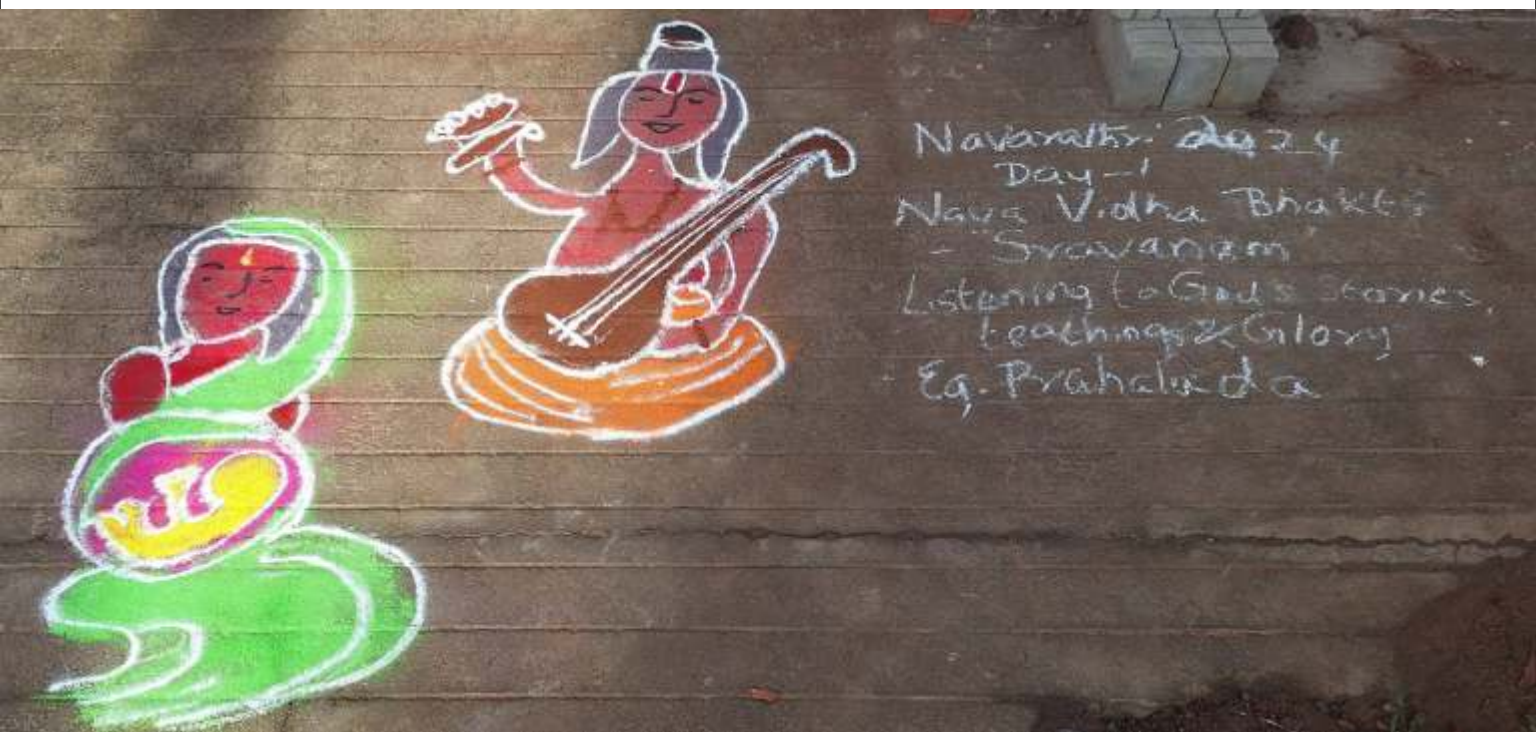 Navarathri 2024
Day-1
Nava Vidha Bhakti
- Sravanam
Listening to God's stories,
teachings & Glory
Eg. Prahalada